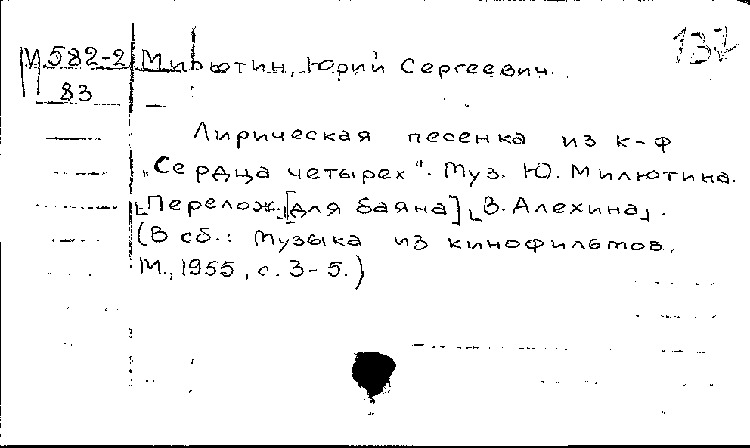 М.582-2 Милютин, Юрий Сергеевич. 137
83
Лирическая песенка из к-ф
„Сердца четырех". Муз. Ю. Милютина.
[Перелож.] [для баяна] [В. Алехина].
(В сб.: Музыка из кинофильмов.
М., 1955, с. 3-5.)